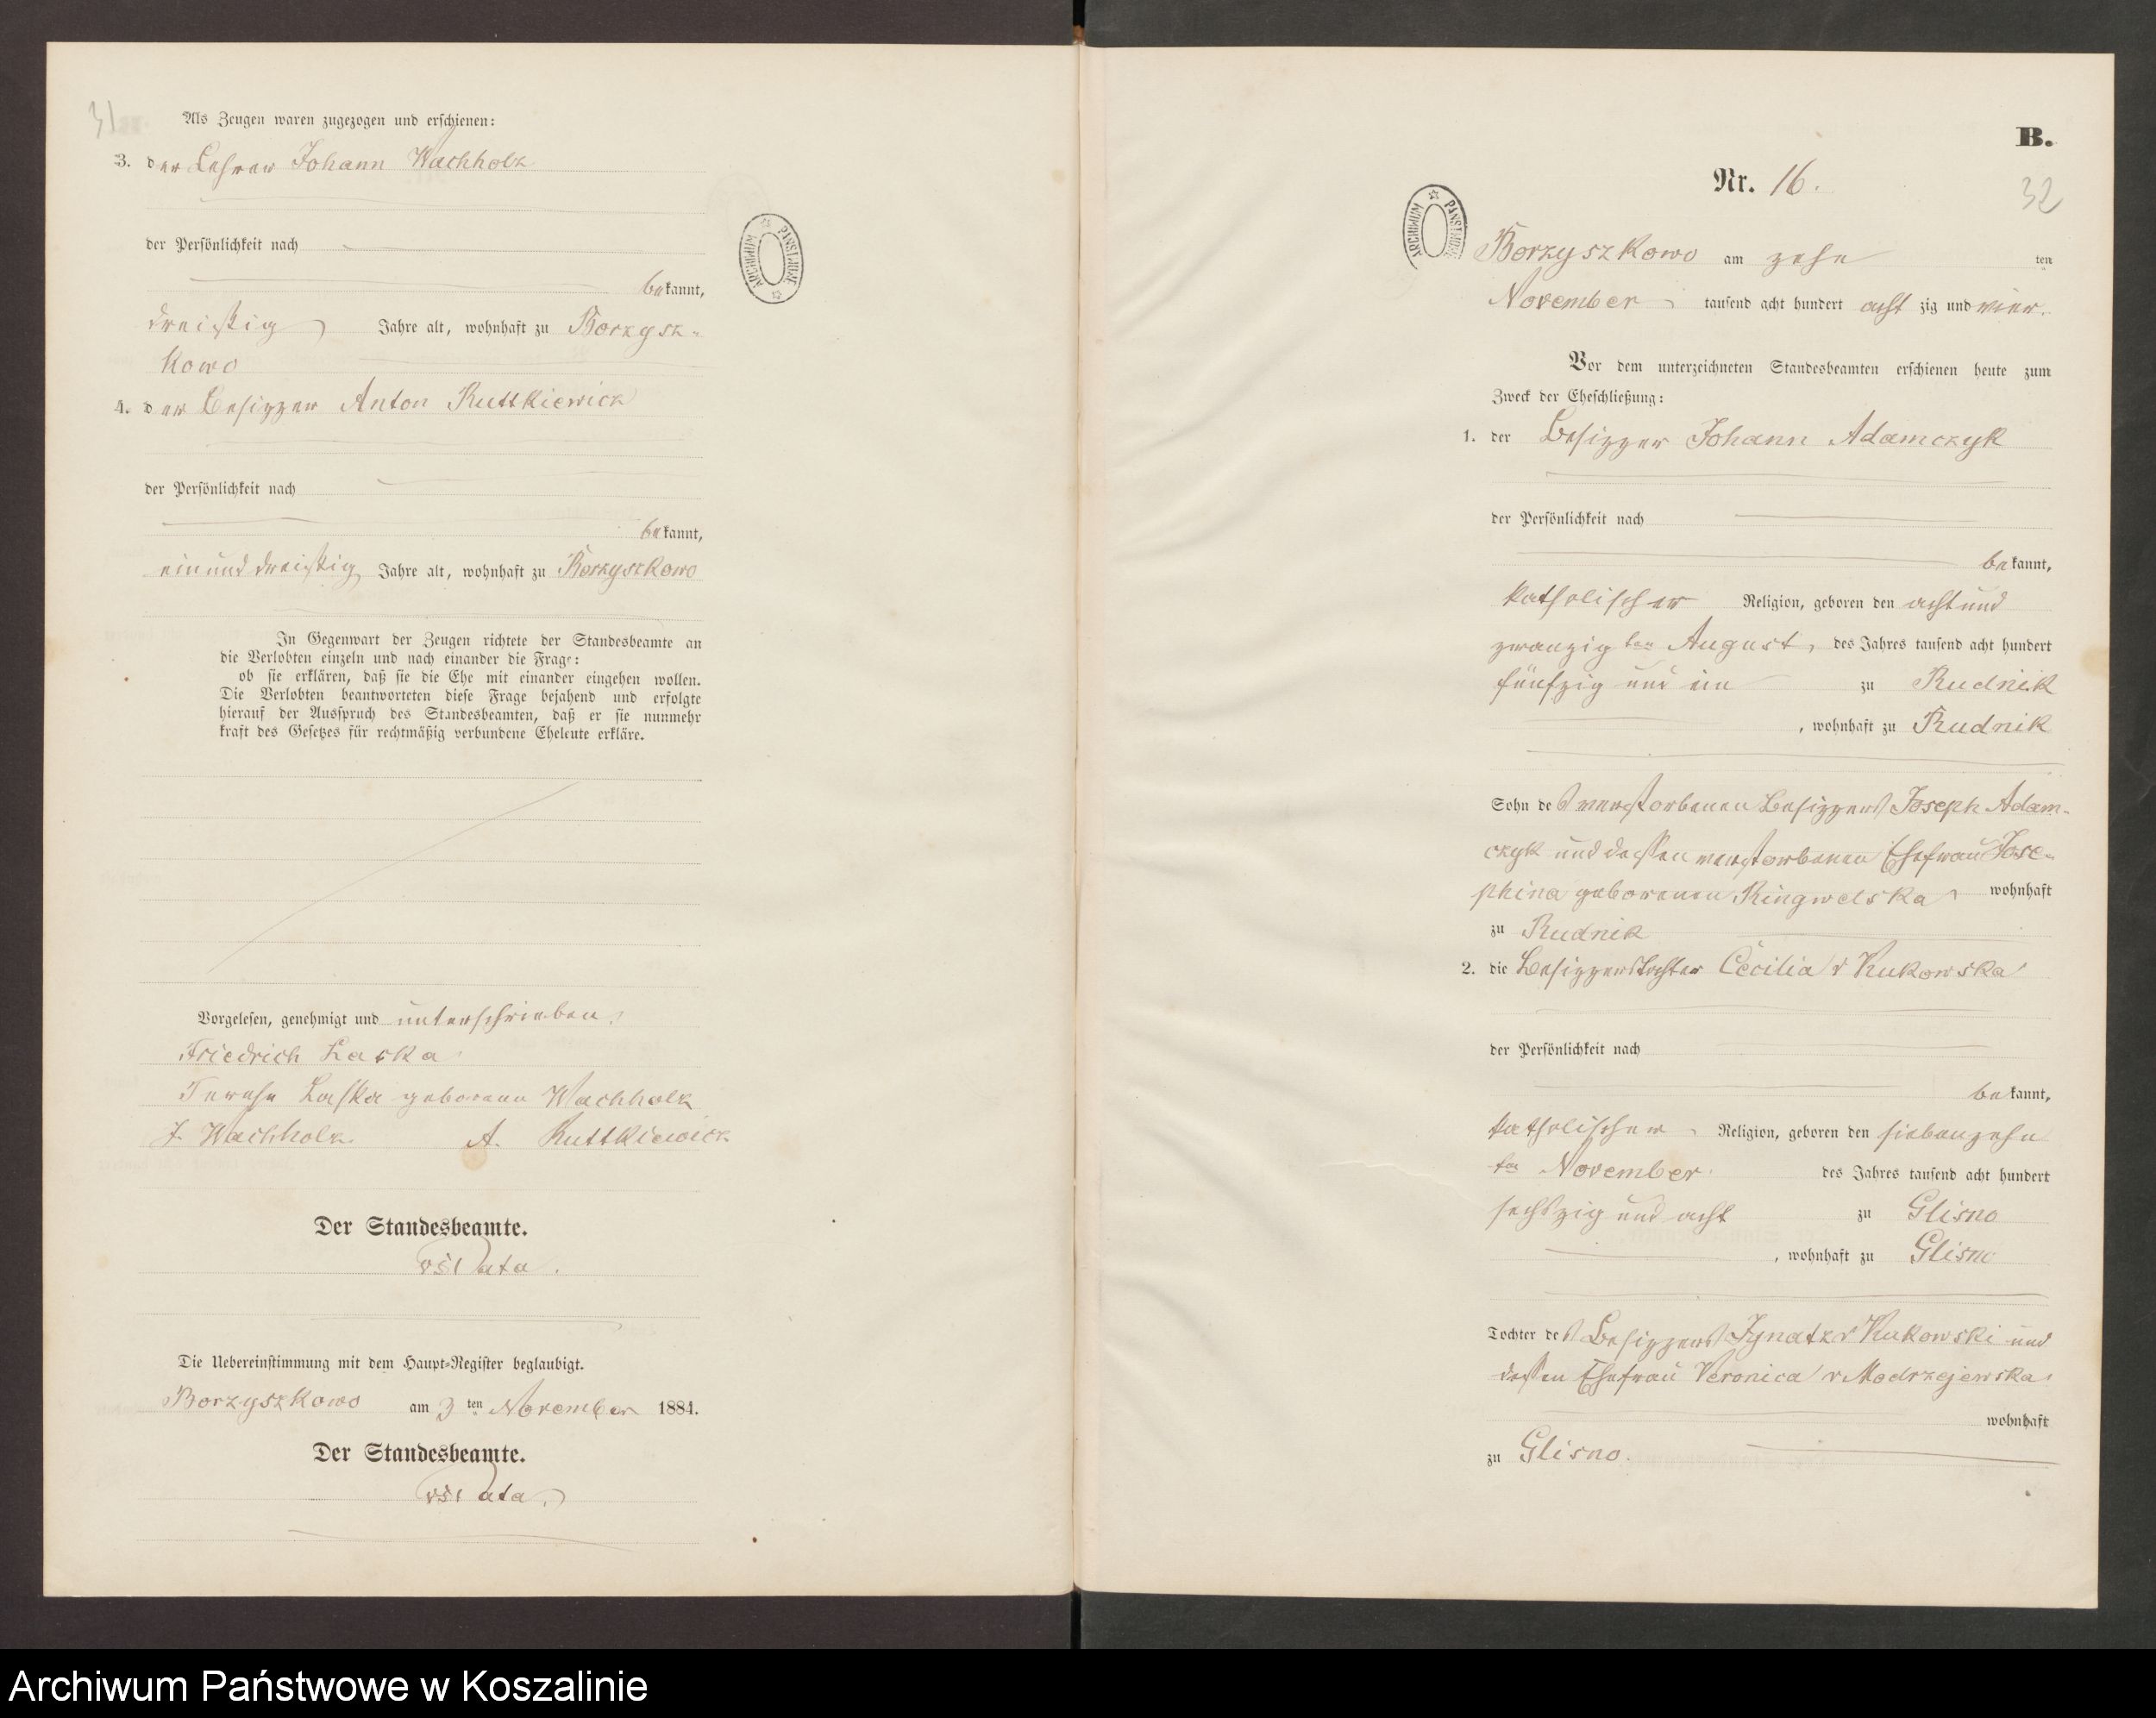 31
Als Zeugen waren zugezogen und erschienen:
3. der Lehrer Johann Wachholz
der Persönlichkeit nach
bekannt,
dreißig Jahre alt, wohnhaft zu Borzysz-
kowo
4. der Besitzer Anton Ruttkiewicz
der Persönlichkeit nach
bekannt,
ein und dreißig Jahre alt, wohnhaft zu Borzyszkowo
In Gegenwart der Zeugen richtete der Standesbeamte an
die Verlobten einzeln und nach einander die Frage:
ob sie erklären, daß sie die Ehe mit einander eingehen wollen.
Die Verlobten beantworteten diese Frage bejahend und erfolgte
hierauf der Ausspruch des Standesbeamten, daß er sie nunmehr
kraft des Gesetzes für rechtmäßig verbundene Eheleute erkläre.
Vorgelesen, genehmigt und unterschrieben.
Friedrich Laska
Terese Laska geborene Wachholz
J. Wachholz. A. Ruttkiewicz
Der Standesbeamte.
Die Uebereinstimmung mit dem Haupt-Register beglaubigt.
Borzyszkowo am 3 ten November 1884.
Der Standesbeamte.
ARCHIWUM PAŃSTWOWE
B.
Nr. 16.
32
ARCHIWUM PAŃSTWOWE
Borzyszkowo am zehn ten
November tausend acht hundert acht zig und vier.
Vor dem unterzeichneten Standesbeamten erschienen heute zum
Zweck der Eheschließung:
1. der Besitzer Johann Adamczyk
der Persönlichkeit nach
bekannt,
katholischer Religion, geboren den acht und
zwanzig ten August, des Jahres tausend acht hundert
fünfzig und ein zu Rudnik
, wohnhaft zu Rudnik
Sohn des verstorbenen Besitzers Joseph Adam-
czyk und dessen verstorbenen Ehefrau Jose-
phina geborenen Ringwelska wohnhaft
zu Rudnik
2. die Besitzerstochter Cecilia v Kukowska
der Persönlichkeit nach
bekannt,
katholischer Religion, geboren den siebenzehn
ten November des Jahres tausend acht hundert
sechszig und acht zu Glisno
, wohnhaft zu Glisno
Tochter des Besitzers Ignatz v Kukowski und
dessen Ehefrau Veronica v Modrzejewska
wohnhaft
zu Glisno.
Archiwum Państwowe w Koszalinie